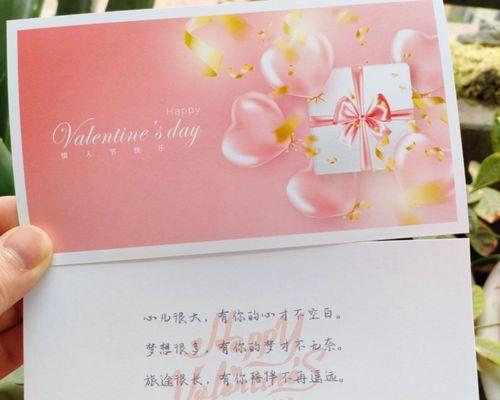 Happy
Valentine's day
情人节快乐
心儿很大，有你的心才不空白。
梦想很多，有你的梦才不无奈。
旅途很长，有你陪伴不再遥远。
Happy
Valentine's